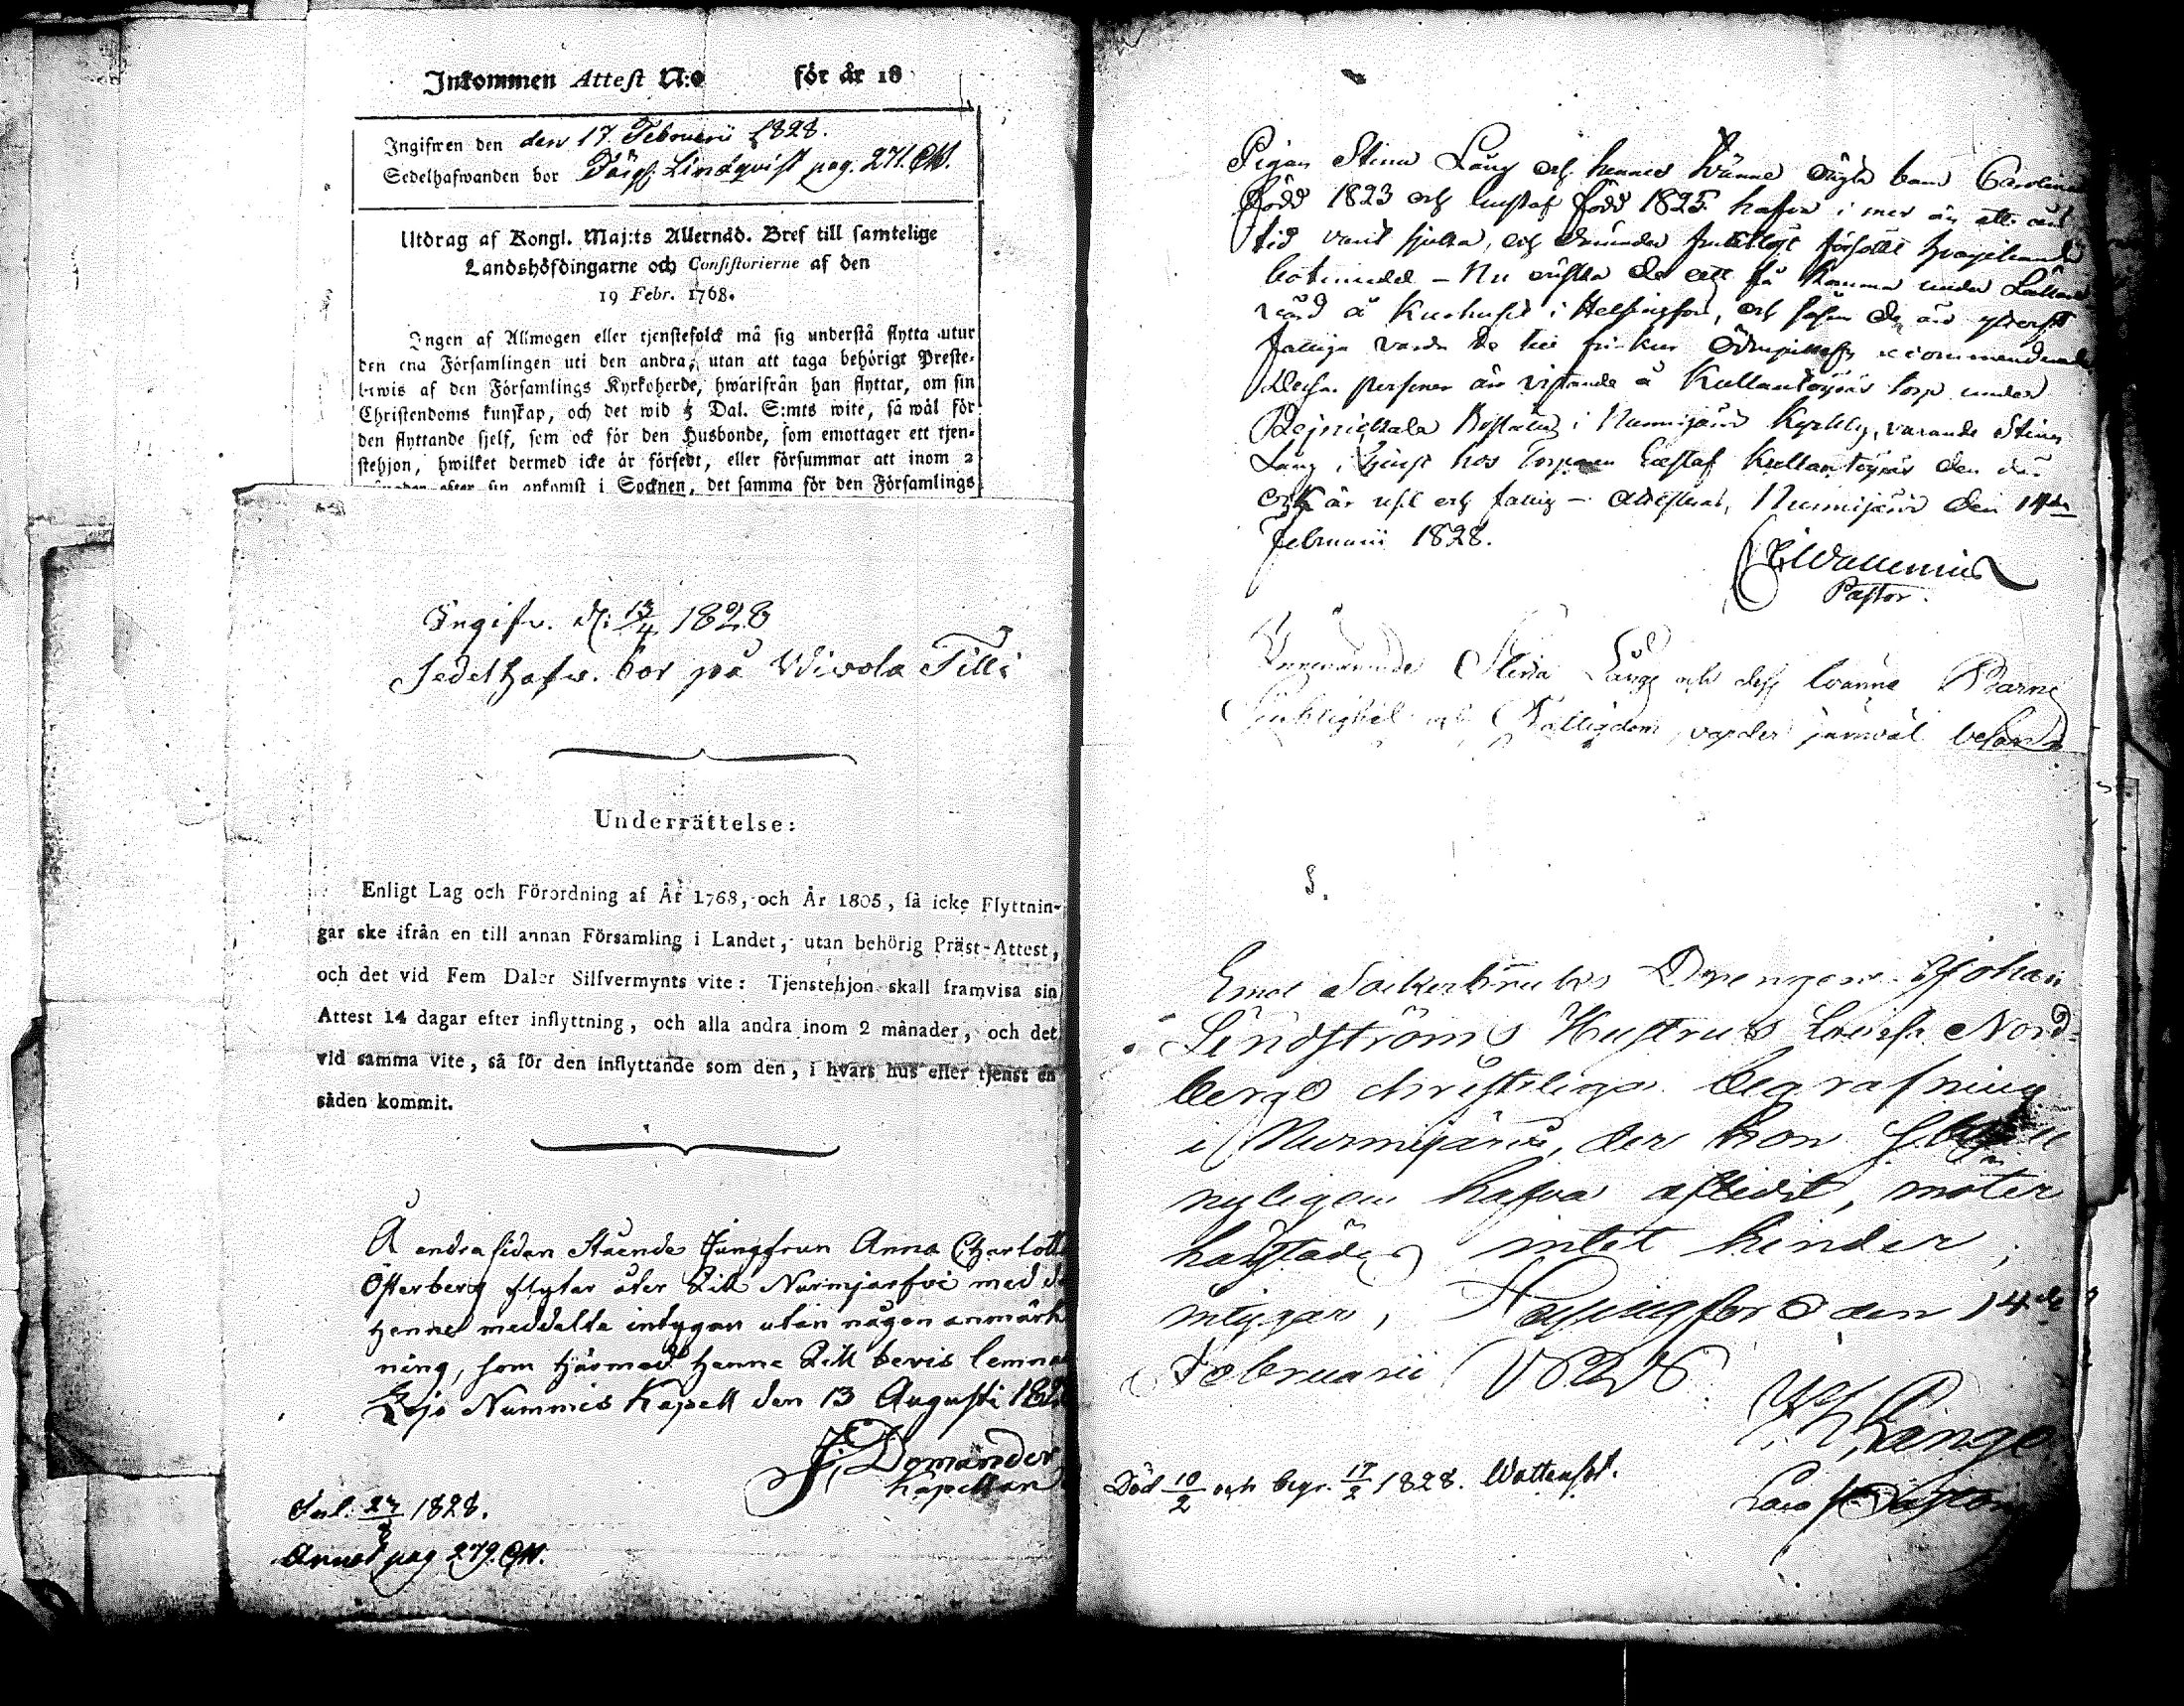 Inkommen Attest N:o för år 18
Ingifwen den den 17. Februarii 1828.
Sedelhafwanden bor Färg: Lindqvist pag. 271. CW.
Utdrag af Kongl. Maj:ts Allernåd. Bref till samtelige
Landshöfdingarne och Consistorierne af den
19 Febr. 1768.
Ingen af Allmogen eller tjenstefolck må sig understå flytta utur
den ena Församlingen uti den andra, utan att taga behörigt Preste-
bewis af den Församlings Kyrkoherde, hwarifrån han flyttar, om sin
Christendoms kunskap, och det wid 5 Dal. S:mts wite, så wäl för
den flyttande sjelf, som ock för den Husbonde, som emottager ett tjen-
stehjon, hwilket dermed icke är försedt, eller försummar att inom 2
månader efter sin ankomst i Socknen, det samma för den Församlings
Ingifv. d: 13/4 1828
Sedelhafv. bor på Wivola Tilli
Underrättelse:
Enligt Lag och Förordning af År 1768, och År 1805, få icke Flyttnin-
gar ske ifrån en till annan Församling i Landet, utan behörig Präst-Attest,
och det vid Fem Daler Silfvermynts vite: Tjenstehjon skall framvisa sin
Attest 14 dagar efter inflyttning, och alla andra inom 2 månader, och det
vid samma vite, så för den inflyttande som den, i hvars hus eller tjenst en
såden kommit.
Å andra sidan Stående Jungfrun Anna Charlotta
Österberg flytar åter Till Nurmjarfvi med de
Henne meddelte intygan utan någon anmärk
ning, som härmed Henne Till bevis lemnas
Lojo Nummis Kapell den 13 Augusti 182
J. Domander
Kapellan
Inl. 27/8 1828.
Annot pag 279. CW.
Pigan Stina Lång och hennes tvänne oägta barn Carolina
född 1823 och Gustaf född 1825 hafva i mer än ett års
tid varit sjuka, och fruktlöst försökt
botmedel – Nu önska de att få komma under Läkare
vård å Kurhuset i Helsingfors, och såsom de äro ytterst
fattiga varda de till fri kur ödmjukast recommenderade
Dessa personer äro vistande å Kullantöyräs torp under
Boställe i Nurmijärvi Kyrkby, varande Stina
Lång i tjenst hos Torparen Gustaf Kullantöyräs den där
ock är usel och fattig – attesteras, Nurmijärvi den 14de
Februarii 1828.
Wallenius
Pastor.
Stina Lång och dess tvänne Barns
Sjuklighet och Fattigdom, varder jämväl
S.
Emot Sockerbruks Drengen Johan
Lindströms Hustrus Lovisa Nord-
bergs christeliga Begrafning
i Nurmijärvi, der hon
nyligen hafva aflidit, möter
härstädes intet hinder;
intygar, Helsingfors den 14de
Februarii
Länge
Död 10/2 och begr. 17/2 1828. Wattensot.